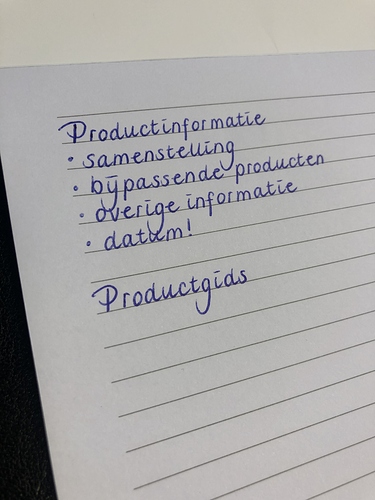 Productinformatie
• samenstelling
• bijpassende producten
• overige informatie
• datum!
Productgids